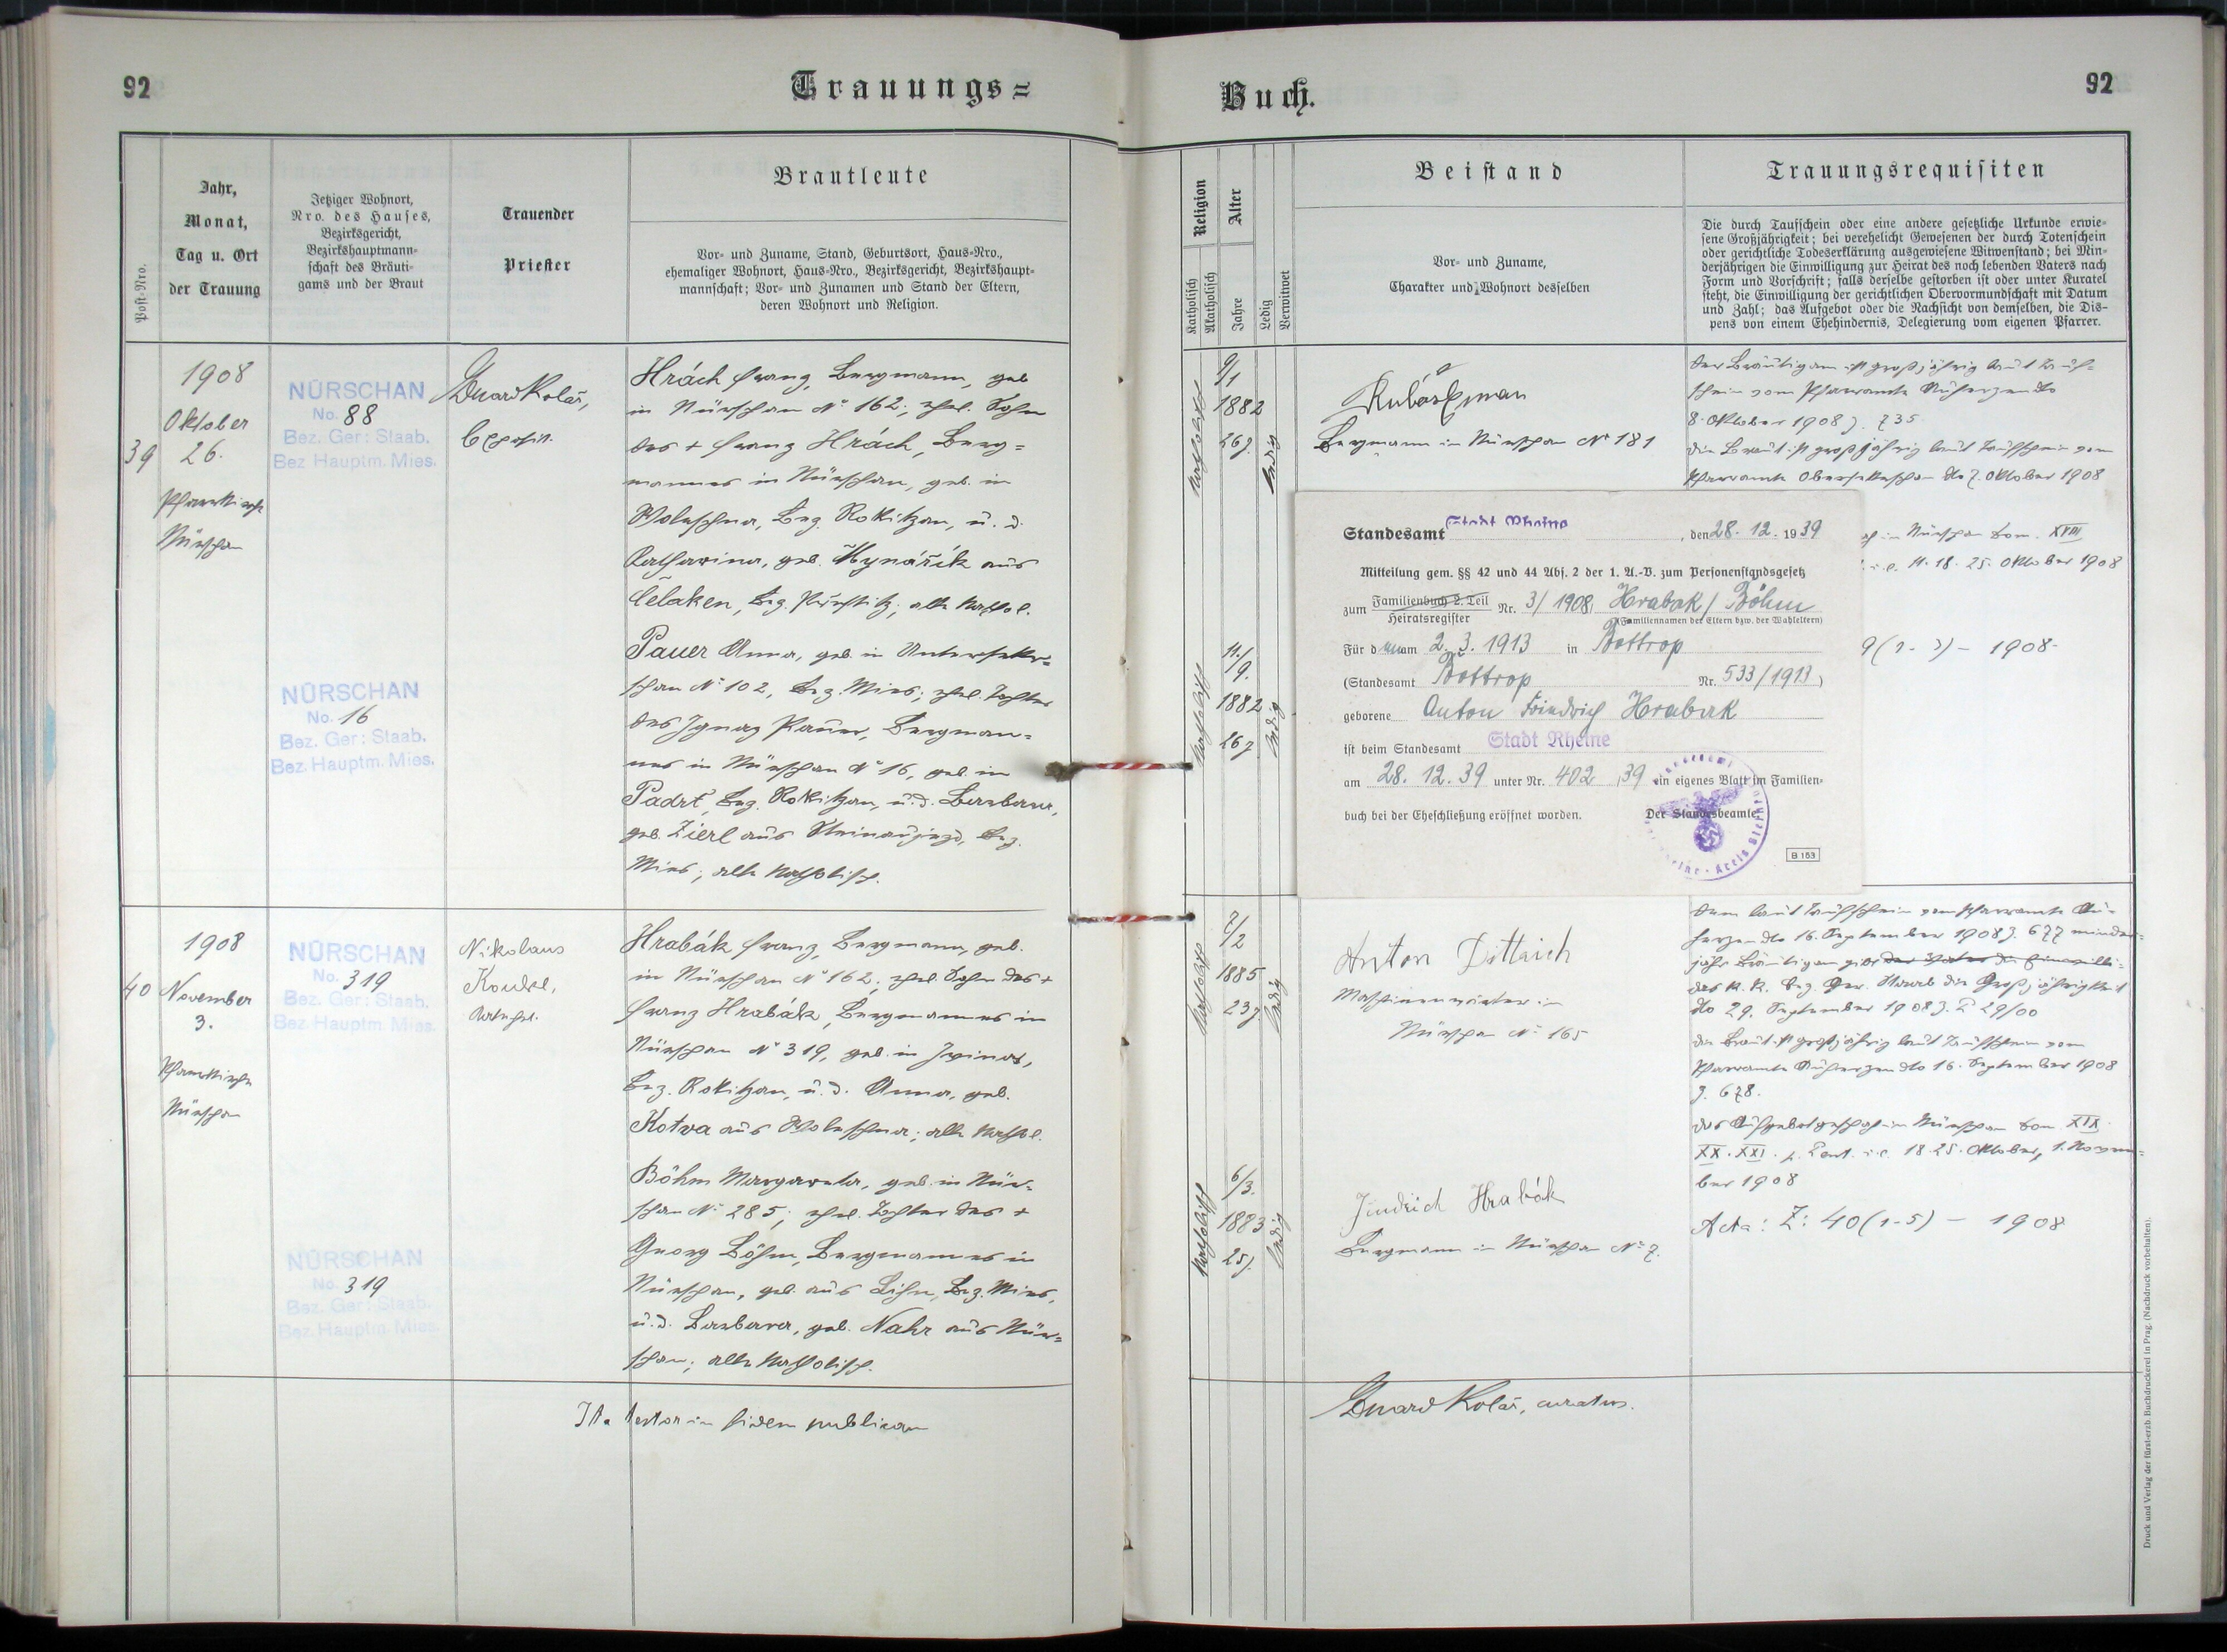 92
Trauungs=
Post-Nro.
Jahr,
Monat,
Tag u. Ort
der Trauung
Jetziger Wohnort,
Nro. des Hauses,
Bezirksgericht,
Bezirkshauptmann-
schaft des Bräuti-
gams und der Braut
Trauender
Priester
Brautleute
Vor- und Zuname, Stand, Geburtsort, Haus-Nro.,
ehemaliger Wohnort, Haus-Nro., Bezirksgericht, Bezirkshaupt=
mannschaft; Vor- und Zunamen und Stand der Eltern,
deren Wohnort und Religion.
39
1908
Oktober
26.
Pfarrkirche
Nürschan
NÜRSCHAN
No. 88
Bez. Ger: Staab.
Bez Hauptm. Mies.
Eduard Kolář,
Hrách Franz, Bergmann, geb
in Nürschan N° 162, ehel. Sohn
des + Franz Hrách, Berg=
mannes in Nürschan, geb. in
Woleschna, Bez. Rokitzan, u. d.
Katharina, geb. Mynářík aus
Čelaken, Bez. Prestitz; alle kathol.
NÜRSCHAN
No. 16
Bez. Ger: Staab.
Bez. Hauptm. Mies.
Pauer Anna, geb. in Untersekr=
schan N° 102, Bez. Mies; ehel. Tochter
des Ignaz Pauer, Bergman=
nes in Nürschan N° 16, geb. in
Padrť, Bez. Rokitzan, u. d. Barbara,
geb. Zierl aus Steinaujezd, Bez.
Mies; alle katholisch.
40
1908
November
3.
Pfarrkirche
Nürschan
NÜRSCHAN
No. 319
Bez. Ger: Staab.
Bez. Hauptm. Mies
Nikolaus
Hrabák Franz, Bergmann, geb.
in Nürschan N° 162, ehel. Sohn des +
Franz Hrabák, Bergmannes in
Nürschan N° 319, geb. in
Bez. Rokitzan, u. d. Anna, geb.
Kotva aus Woleschna; alle kathol.
NÜRSCHAN
No. 319
Bez. Ger: Staab.
Bez. Hauptm. Mies.
Böhm Margareta, geb. in Nür-
schan N° 285; ehel. Tochter des +
Georg Böhm, Bergmannes in
Nürschan, geb. aus Lihn, Bez. Mies,
u. d. Barbara, geb. Nahr aus Nür=
schan; alle katholisch.
Ita testor in fidem publicam
Buch.
92
Religion
Katholisch
Akatholisch
Alter
Jahre
Ledig
Verwitwet
Beistand
Vor- und Zuname,
Charakter und Wohnort desselben
Trauungsrequisiten
Die durch Taufschein oder eine andere gesetzliche Urkunde erwie-
sene Großjährigkeit; bei verehelicht Gewesenen der durch Totenschein
oder gerichtliche Todeserklärung ausgewiesene Witwenstand; bei Min-
derjährigen die Einwilligung zur Heirat des noch lebenden Vaters nach
Form und Vorschrift; falls derselbe gestorben ist oder unter Kuratel
steht, die Einwilligung der gerichtlichen Obervormundschaft mit Datum
und Zahl; das Aufgebot oder die Nachsicht von demselben, die Dis-
pens von einem Ehehindernis, Delegierung vom eigenen Pfarrer.
katholisch
9/1
1882
26 J.
ledig
Bergmann in Nürschan N° 181
Der Bräutigam ist großjährig laut Tauf=
schein vom Pfarramte
8. Oktober 1908 J. 735
die Braut ist großjährig laut Taufschein vom
Pfarramte Obersekerschan dto 7. Oktober 1908
in Nürschan Dom. XVIII
i.e. 11. 18. 25. Oktober 1908
9(1- ) - 1908
katholisch
11./9.
1882
26 J.
ledig
Standesamt Stadt Rheine, den 28. 12. 1939
Mitteilung gem. §§ 42 und 44 Abs. 2 der 1. A.-V. zum Personenstandsgesetz
zum Familienbuch 2. Teil
Heiratsregister Nr. 3/1908 Hrabak / Böhm
(Familiennamen der Eltern bzw. der Wahleltern)
Für den am 2. 3. 1913 in Bottrop
(Standesamt Bottrop Nr. 533/1913)
geborene Anton Friedrich Hrabak
ist beim Standesamt Stadt Rheine
am 28. 12. 39 unter Nr. 402/39 ein eigenes Blatt im Familien-
buch bei der Eheschließung eröffnet worden.
Der Standesbeamte
B 153
katholisch
7/2
1885
23 J
ledig
Anton Dittrich
Maschinenwärter in
Nürschan N° 165
Dem laut Taufschein vom Pfarramte
dto 16. September 1908 J. 677 minder=
jähr. Bräutigam gibt
das k. k. Bez. Ger. Staab die Großjährigkeit
dto 29. September 1908 J. P 29/00
die Braut ist großjährig laut Taufschein vom
Pfarramte dto 16. September 1908
J. 678.
das Aufgebot geschah in Nürschan Dom. XIX.
XX. XXI. p. Pent. i.e. 18. 25. Oktober, 1. Novem=
ber 1908
Acta: Z: 40(1-5) - 1908
katholisch
6/3.
1883
25 J.
ledig
Jindřich Hrabák
Bergmann in Nürschan N° 7.
Eduard Kolář, curatus.
Druck und Verlag der fürst-erzb. Buchdruckerei in Prag. (Nachdruck vorbehalten).